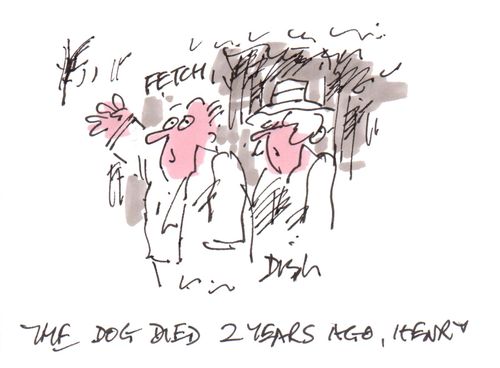 FETCH!
THE DOG DIED 2 YEARS AGO, HENRY